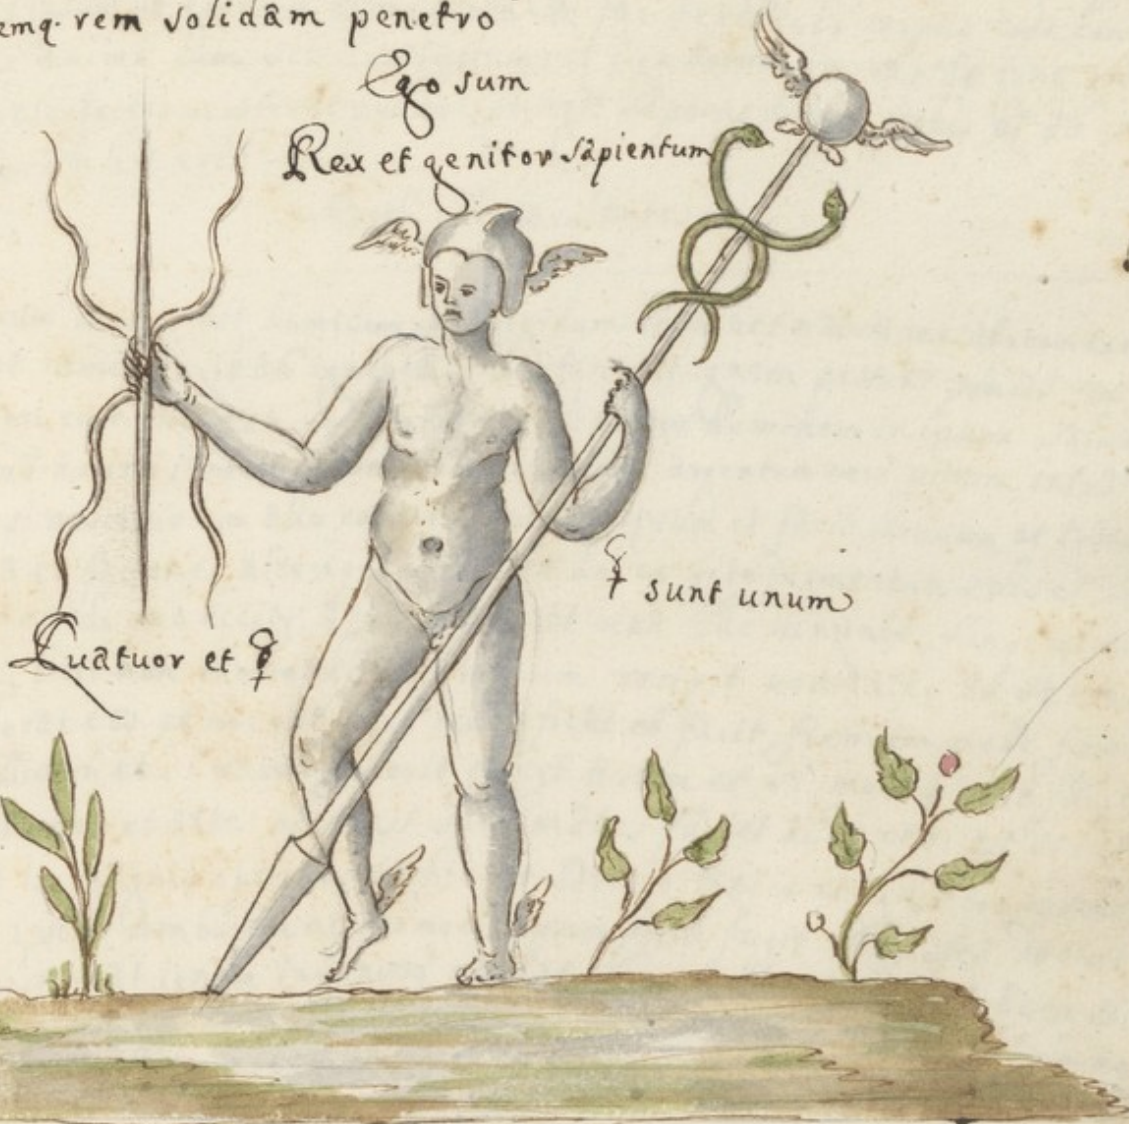 emq. rem solidam penetro
Ego sum
Rex et genitor sapientum
☿ sunt unum
Quatuor et ☿